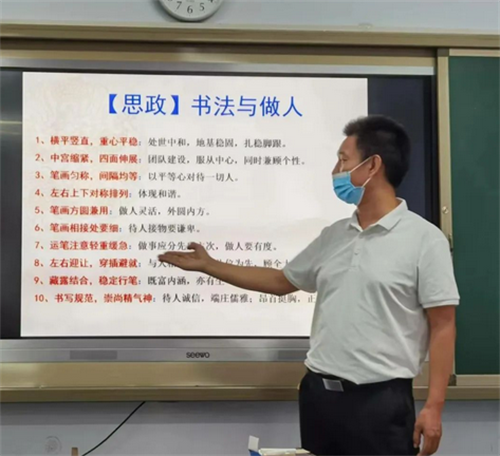 【思政】书法与做人
1、横平竖直，重心平稳：处世中和，地基稳固，扎稳脚跟。
2、中宫缩紧，四面伸展：团队建设，服从中心，同时兼顾个性。
3、笔画匀称，间隔均等：以平等心对待一切人。
4、左右上下对称排列：体现和谐。
5、笔画方圆兼用：做人灵活，外圆内方。
6、笔画相接处要细：待人接物要谦卑。
7、运笔注意轻重缓急：做事应分先 次，做人要有度。
8、左右迎让，穿插避就：与人 为先，顾全
9、藏露结合，稳定行笔：既富内涵，亦有
10、书写规范，崇尚精气神：待人诚信，端庄儒雅；昂首挺胸，正
seewo